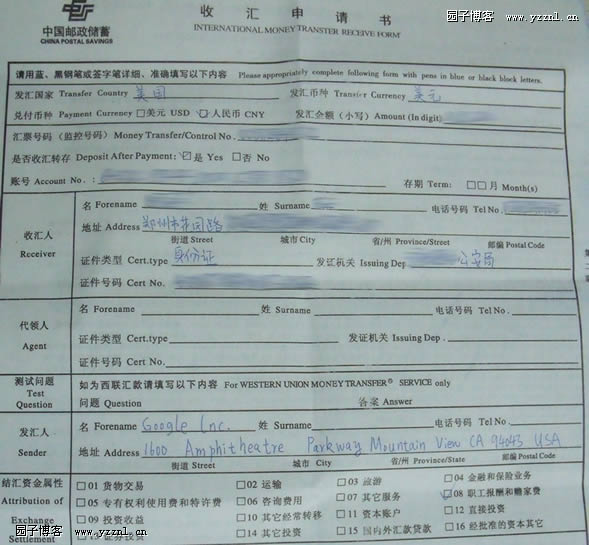 园子博客
www.yzznl.cn
中国邮政储蓄
CHINA POSTAL SAVINGS
收汇申请书
INTERNATIONAL MONEY TRANSFER RECEIVE FORM
请用蓝、黑钢笔或签字笔详细、准确填写以下内容 Please appropriately complete following form with pens in blue or black block letters.
发汇国家 Transfer Country 美国 发汇币种 Transfer Currency 美元
兑付币种 Payment Currency □美元 USD ☑人民币 CNY 发汇金额（小写）Amount (In digit)
汇票号码（监控号码）Money Transfer/Control No.
是否收汇转存 Deposit After Payment: ☑是 Yes □否 No
账号 Account No.: 存期 Term: □□月 Month(s)
收汇人 Receiver
名 Forename 姓 Surname 电话号码 Tel No.
地址 Address 郑州市花园路
街道 Street 城市 City 省/州 Province/Street 邮编 Postal Code
证件类型 Cert.type 身份证 发证机关 Issuing Dep 公安局
证件号码 Cert No.
代领人 Agent
名 Forename 姓 Surname 电话号码 Tel No.
证件类型 Cert.type 发证机关 Issuing Dep.
证件号码 Cert No.
测试问题 Test Question
如为西联汇款请填写以下内容 For WESTERN UNION MONEY TRANSFER® SERVICE only
问题 Question 答案 Answer
发汇人 Sender
名 Forename Google Inc. 姓 Surname 电话号码 Tel No.
地址 Address 1600 Amphitheatre Parkway Mountain View CA 94043 USA
街道 Street 城市 City 省/州 Province/State 邮编 Postal Code
结汇资金属性 Attribution of Exchange Settlement
□01 货物交易 □02 运输 □03 旅游 □04 金融和保险业务
□05 专有权利使用费和特许费 □06 咨询费用 □07 其它服务 ☑08 职工报酬和赡家费
□09 投资收益 □10 其它经常转移 □11 资本账户 □12 直接投资
□13 证券投资 □14 其它投资 □15 国内外汇贷款 □16 经批准的资本其它
园子博客
www.yzznl.cn
园子博客
www.yzznl.cn